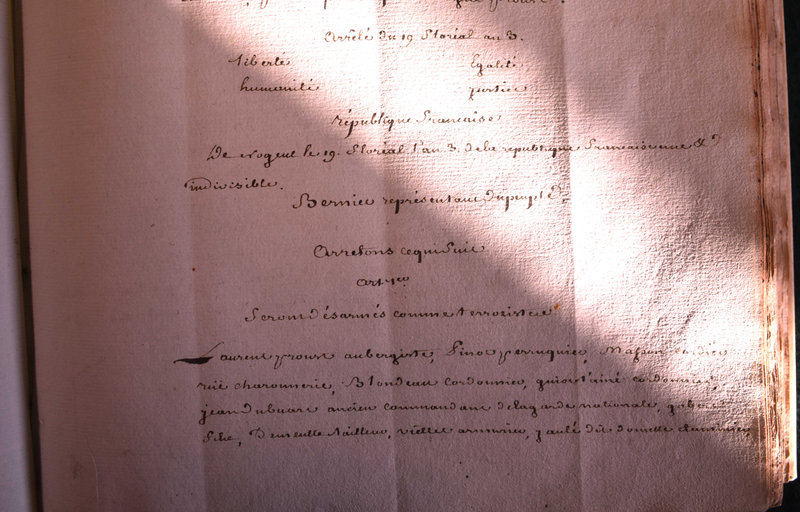 Arrêté du 19 floréal an 3.
liberté Egalité
humanité justice
république francaise
De Nogent le 19. floréal l'an 3. de la republique francaise une &
indivisible.
Bernier représentant du peuple
arretons ce qui suit
art 1er
Seront désarmés comme terroriste
Laurent prout aubergiste, Pinot perruquier, Masson cordier
rue charonnerie, Blondeau cordonnier, guiot l'ainé cordonnier,
jean dubuare ancien commandant de la garde nationale,
tailleur, viellet armurier, paulé dit